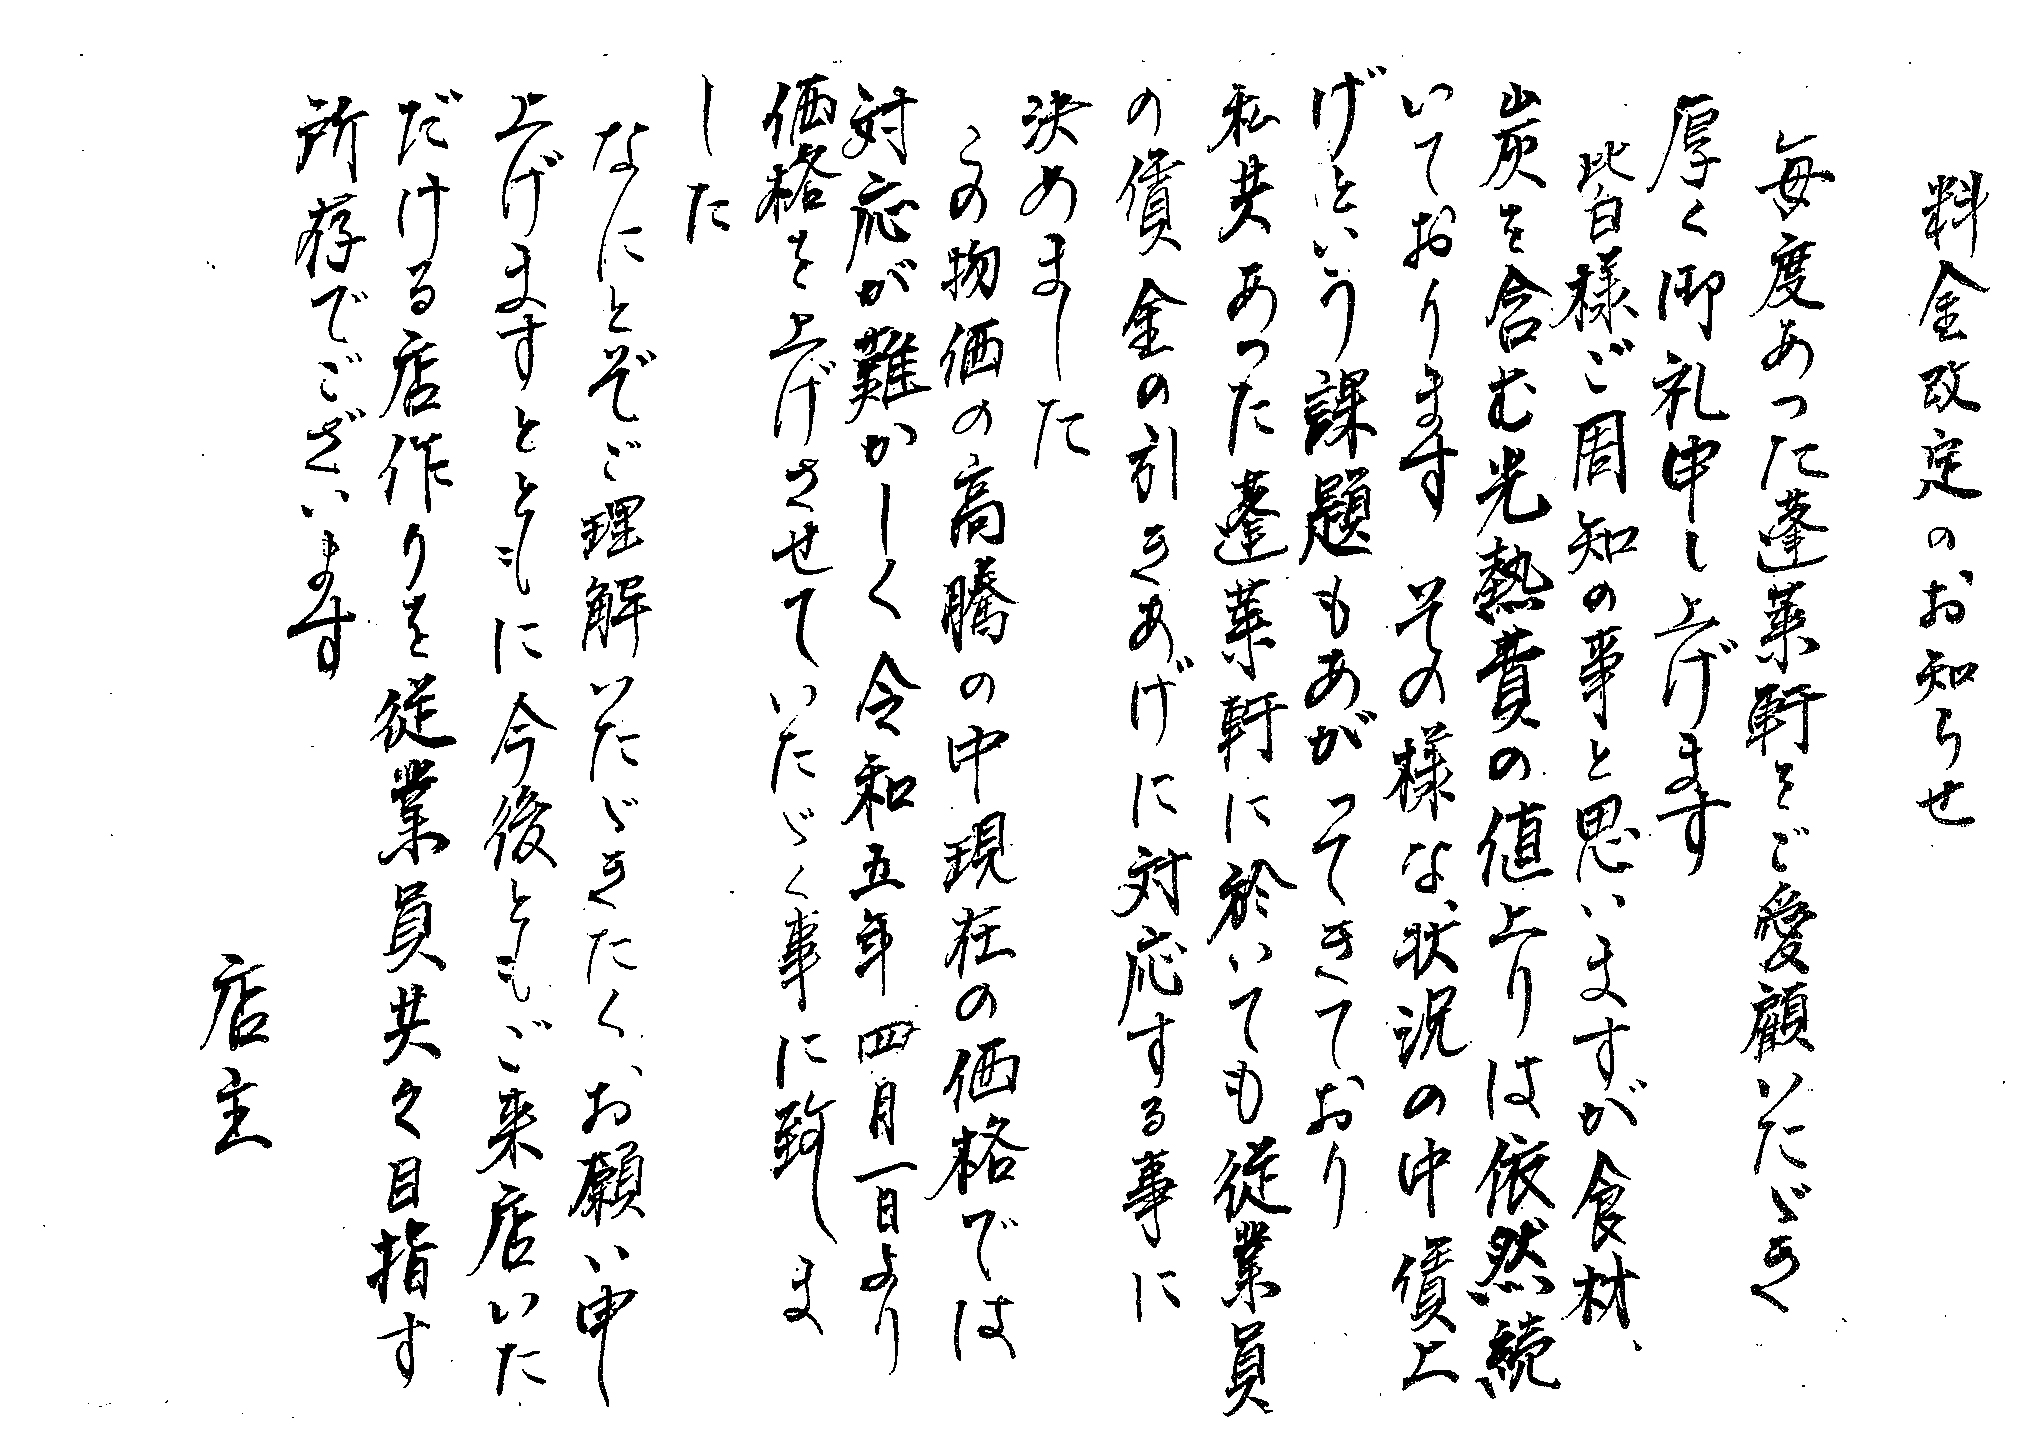 料金改定のお知らせ
毎度あつた蓬莱軒をご愛顧いたゞき
厚く御礼申し上げます
皆様ご周知の事と思いますが食材、
炭を含む光熱費の値上りは依然続
いております その様な状況の中賃上
げという課題もあがってきており
私共あつた蓬莱軒に於いても従業員
の賃金の引きあげに対応する事に
決めました
この物価の高騰の中現在の価格では
対応が難かしく令和五年四月一日より
価格を上げさせていたゞく事に致しま
した
なにとぞご理解いたゞきたく、お願い申し
上げますとともに今後ともご来店いた
だける店作りを従業員共々目指す
所存でございます
店主